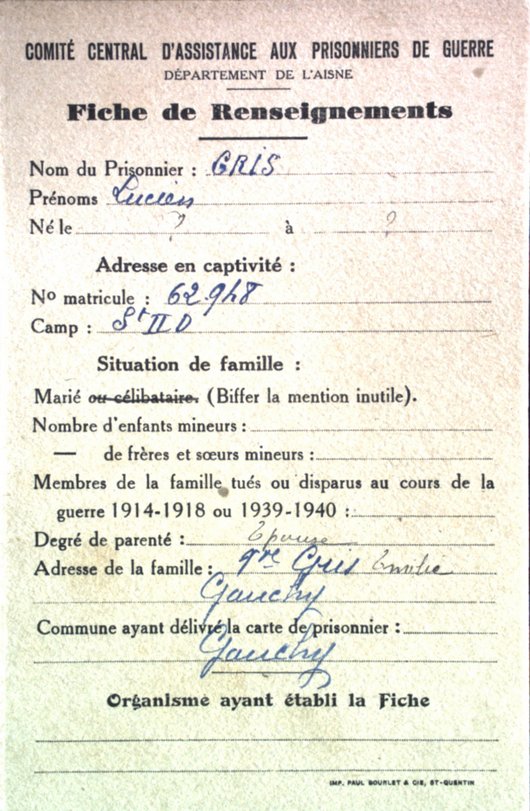 COMITÉ CENTRAL D'ASSISTANCE AUX PRISONNIERS DE GUERRE
DÉPARTEMENT DE L'AISNE
Fiche de Renseignements
Nom du Prisonnier : GRIS
Prénoms Lucien
Né le ? à ?
Adresse en captivité :
No matricule : 62.948
Camp : St II D
Situation de famille :
Marié ou célibataire. (Biffer la mention inutile).
Nombre d'enfants mineurs :
— de frères et sœurs mineurs :
Membres de la famille tués ou disparus au cours de la
guerre 1914-1918 ou 1939-1940 :
Degré de parenté : Epouse
Adresse de la famille : Gris Emilie
Gauchy
Commune ayant délivré la carte de prisonnier :
Gauchy
Organisme ayant établi la Fiche
IMP. PAUL BOURLET & CIE, ST-QUENTIN